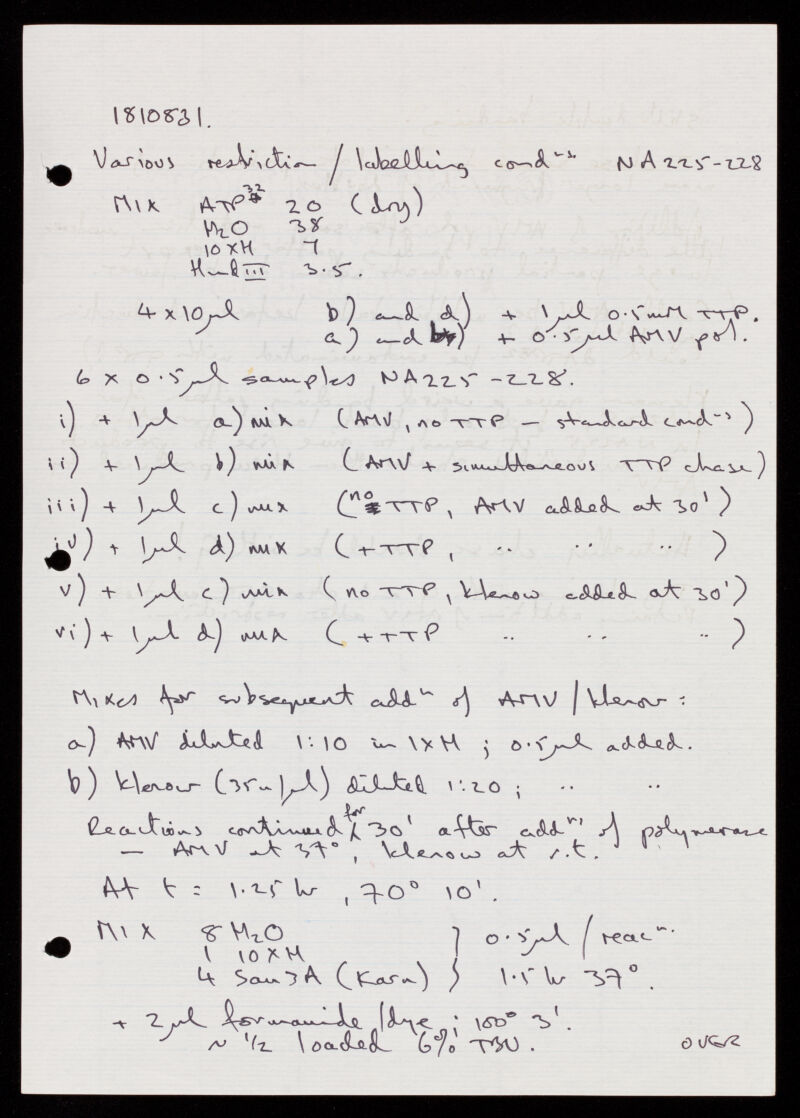 1810831.
Various restriction / labelling condⁿˢ NA225-228
MIX ATP³² 20 (dry)
H2O 38
10XH 7
Hind III 3.5.
4 x 10µl b) and d) + 1µl 0.5mM TTP.
a) and b) + 0.5µl AMV pol.
6 x 0.5µl samples NA225-228.
i) + 1µl a) mix (AMV, no TTP - standard condⁿˢ)
ii) + 1µl b) mix (AMV + simulttaneous TTP chase)
iii) + 1µl c) mix (no TTP, AMV added at 30')
iv) + 1µl d) mix (+TTP, .. .. .. )
v) + 1µl c) mix (no TTP, klenow added at 30')
vi) + 1µl d) mix (+TTP .. .. .. )
Mixes for subsequent addⁿ of AMV / klenow :
a) AMV diluted 1:10 in 1XH ; 0.5µl added.
b) klenow (35u/µl) diluted 1:20 ; .. ..
Reactions continued for 30' after addⁿ of polymerase
- AMV at 37°, klenow at r.t.
At t = 1.25 hr , 70° 10'.
MIX 8 H2O } 0.5µl / reacⁿ.
1 10XH
4 Sau3A (Karn) } 1.5 hr 37°.
+ 2µl formamide / dye ; 100° 3'.
~ 1/2 loaded 6% TBU.
OVER